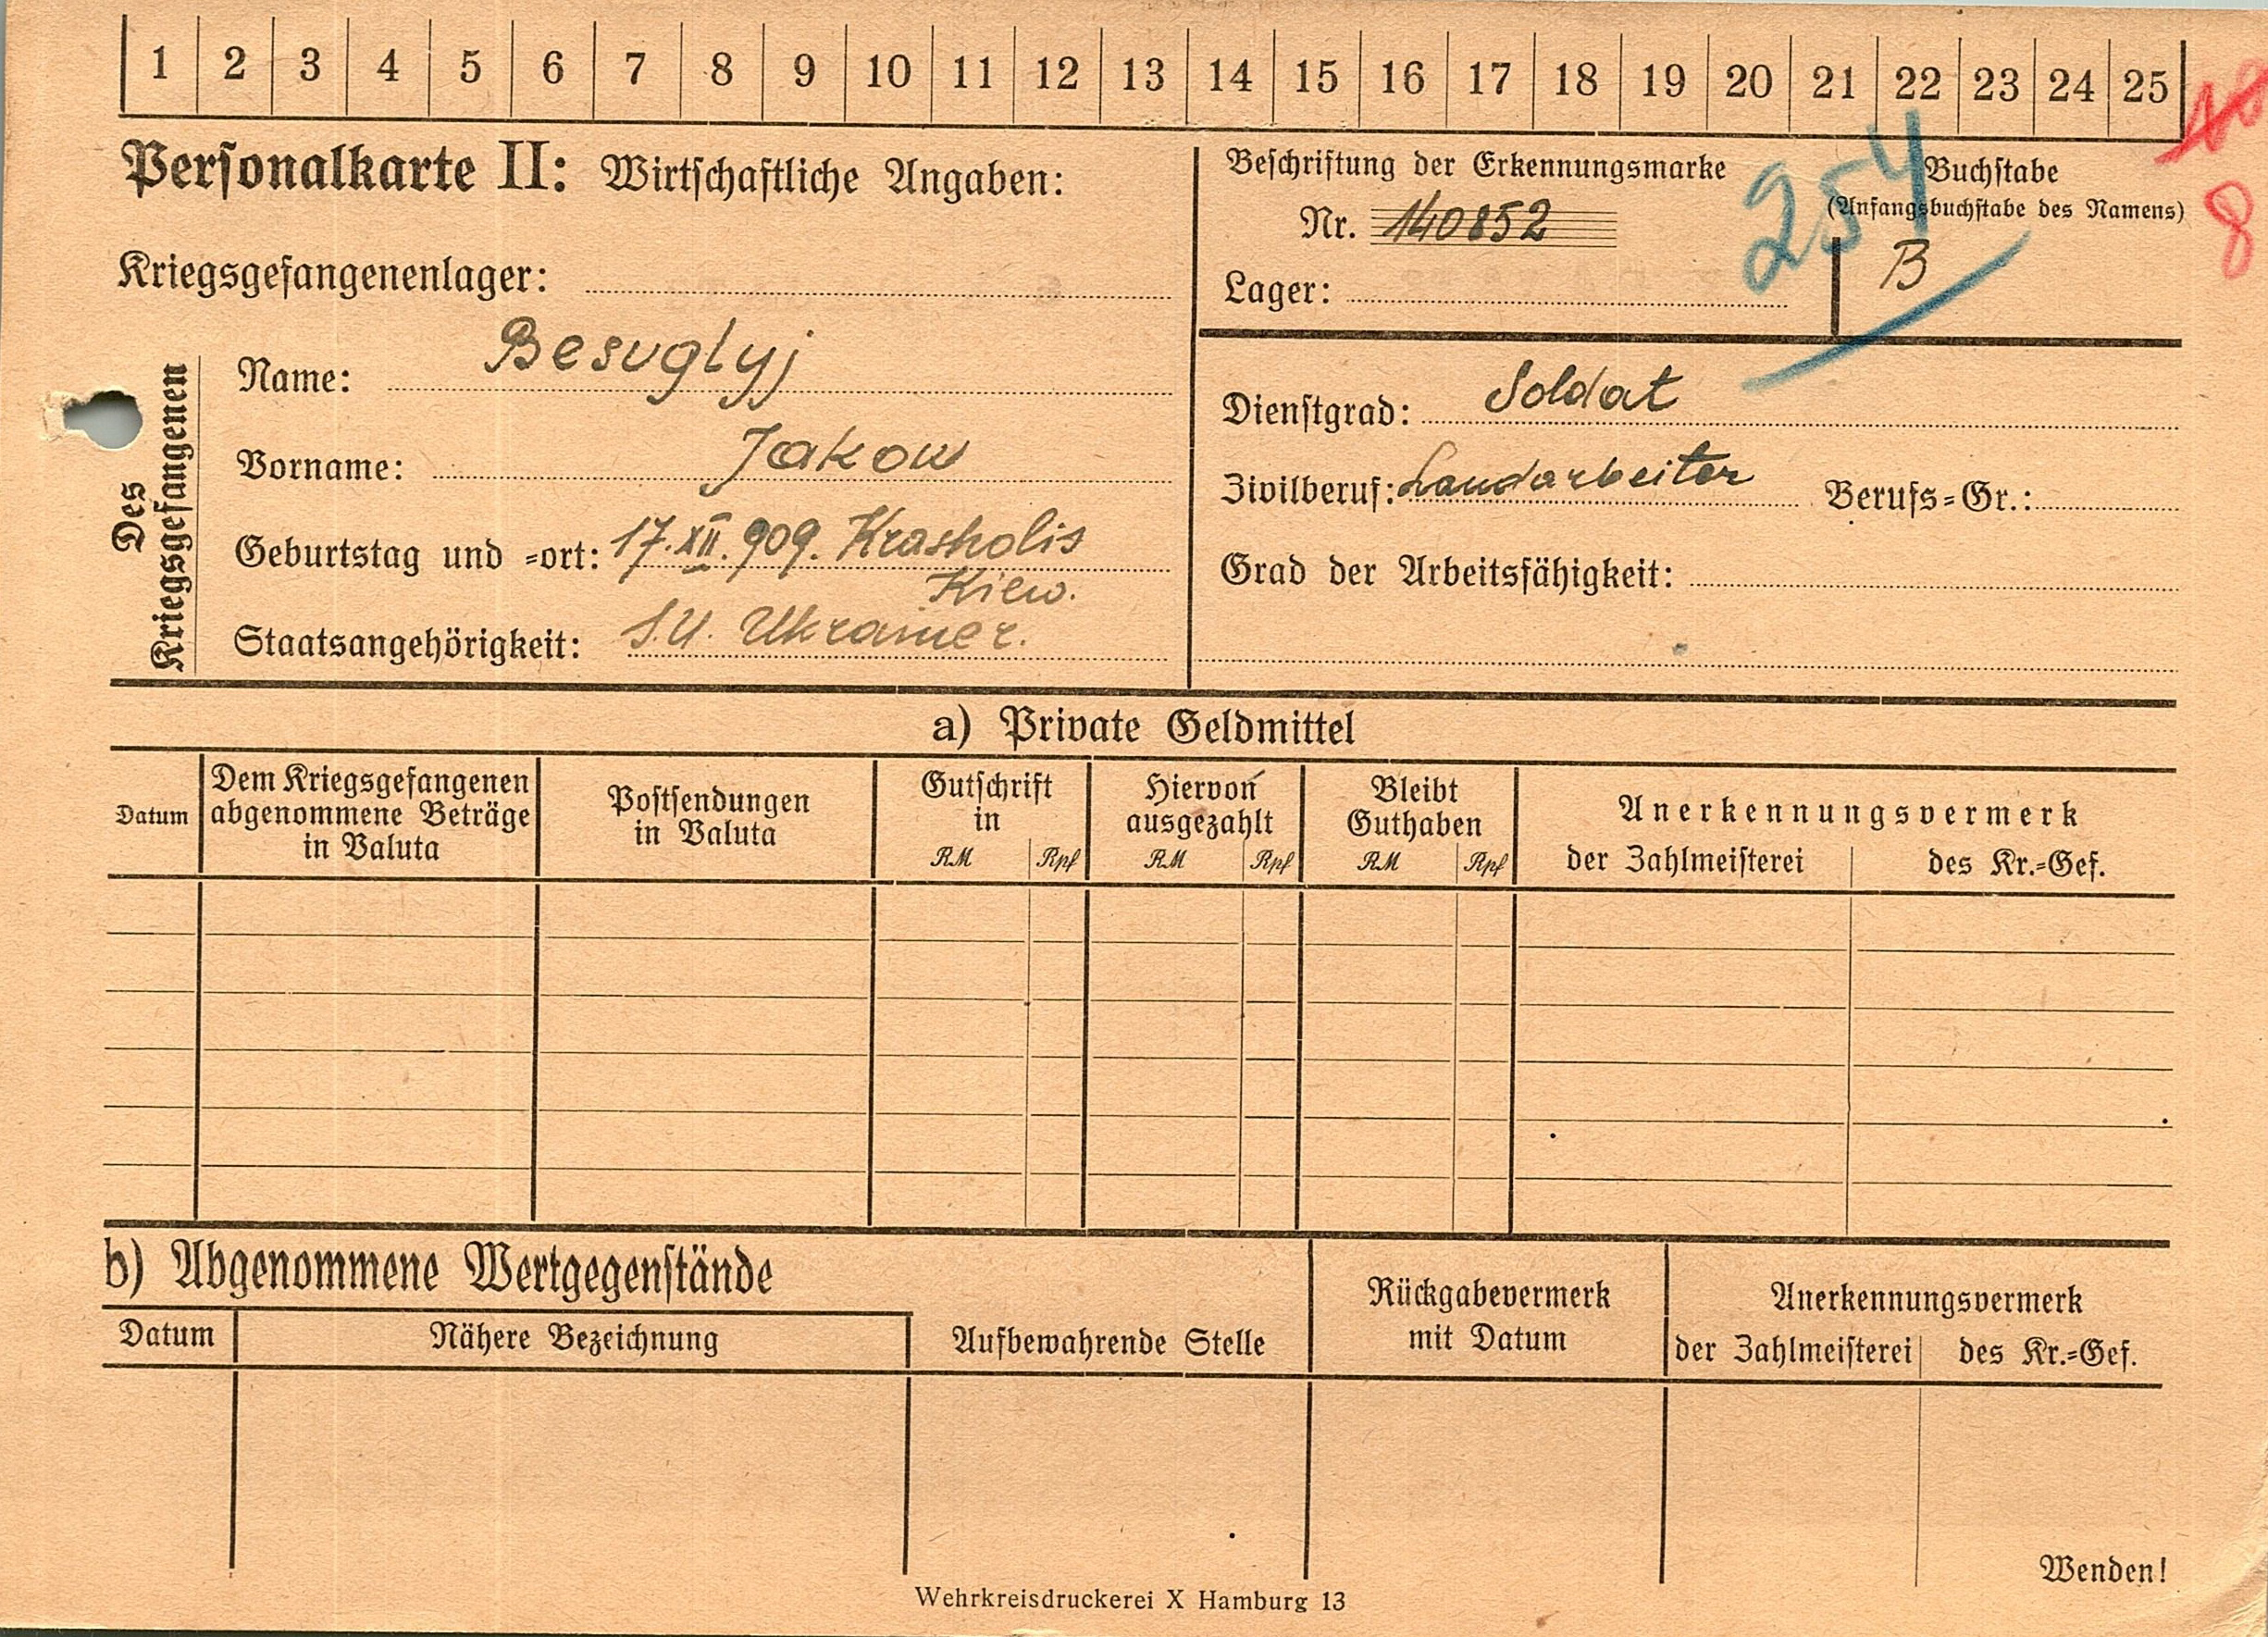 1 2 3 4 5 6 7 8 9 10 11 12 13 14 15 16 17 18 19 20 21 22 23 24 25
Personalkarte II: Wirtschaftliche Angaben:
Kriegsgefangenenlager:
Beschriftung der Erkennungsmarke
Nr. 140852
Lager:
254
Buchstabe
(Anfangsbuchstabe des Namens)
B
8
Des
Kriegsgefangenen
Name: Besuglyj
Vorname: Jakow
Geburtstag und =ort: 17.XII.909. Krasholis
Kiew.
Staatsangehörigkeit: S.U. Ukrainer.
Dienstgrad: Soldat
Zivilberuf: Landarbeiter Berufs=Gr.:
Grad der Arbeitsfähigkeit:
a) Private Geldmittel
Datum
Dem Kriegsgefangenen
abgenommene Beträge
in Valuta
Postsendungen
in Valuta
Gutschrift
in
RM Rpf
Hiervon
ausgezahlt
RM Rpf
Bleibt
Guthaben
RM Rpf
Anerkennungsvermerk
der Zahlmeisterei des Kr.=Gef.
b) Abgenommene Wertgegenstände
Datum Nähere Bezeichnung
Aufbewahrende Stelle
Rückgabevermerk
mit Datum
Anerkennungsvermerk
der Zahlmeisterei des Kr.=Gef.
Wenden!
Wehrkreisdruckerei X Hamburg 13